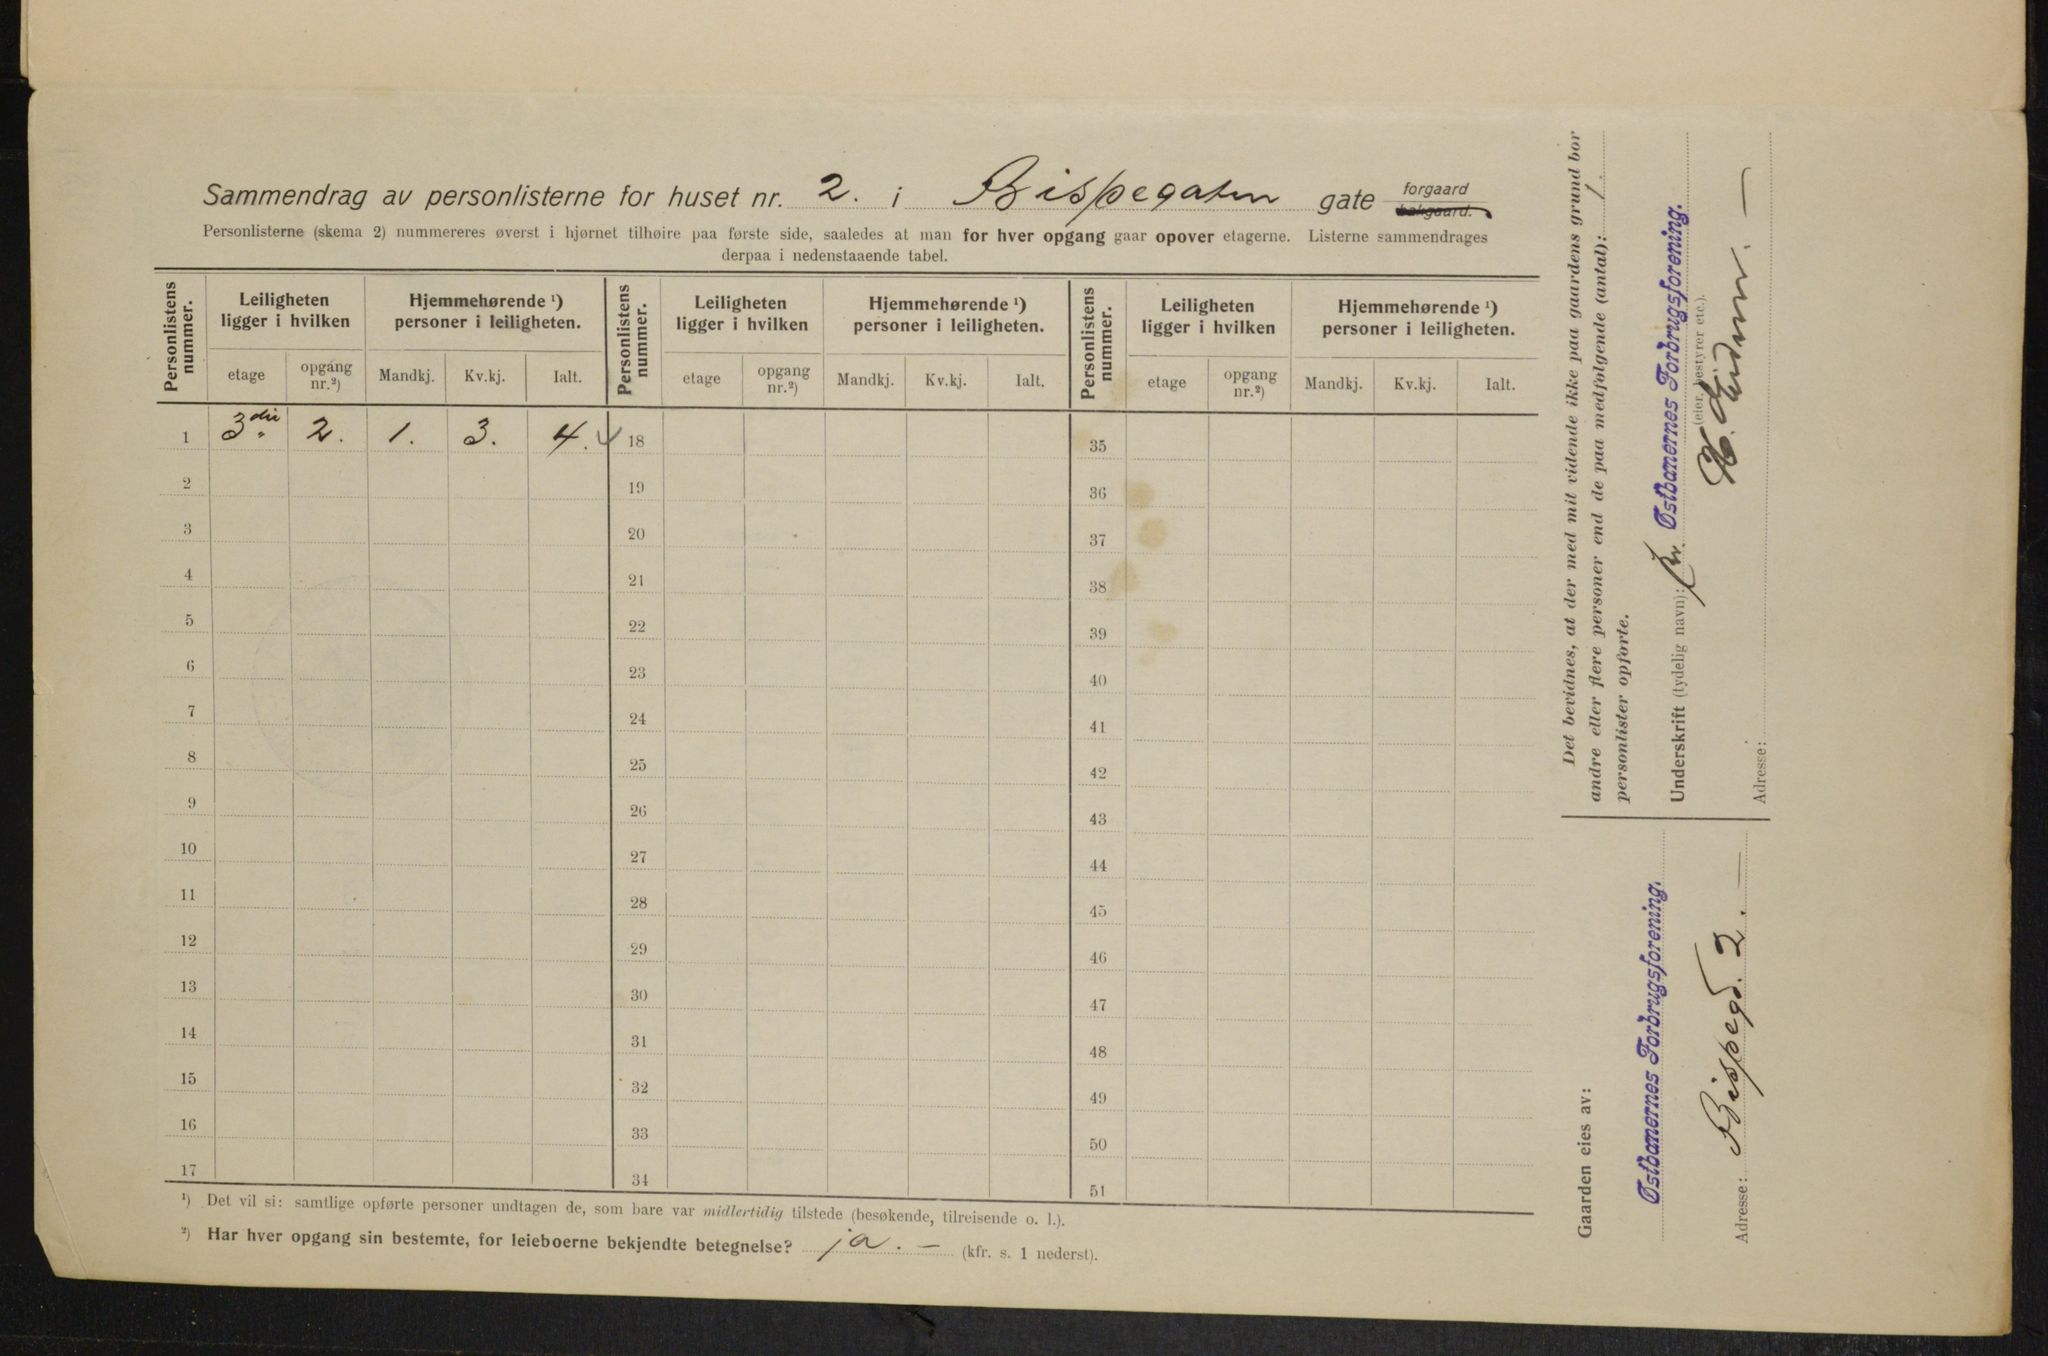 Sammendrag av personlisterne for huset nr. 2. i Bispegaten gate forgaard bakgaard.
Personlisterne (skema 2) nummereres øverst i hjørnet tilhøire paa første side, saaledes at man for hver opgang gaar opover etagerne. Listerne sammendrages
derpaa i nedenstaaende tabel.
Personlistens nummer. Leiligheten ligger i hvilken Hjemmehørende ¹) personer i leiligheten. Personlistens nummer. Leiligheten ligger i hvilken Hjemmehørende ¹) personer i leiligheten. Personlistens nummer. Leiligheten ligger i hvilken Hjemmehørende ¹) personer i leiligheten.
etage opgang nr.²) Mandkj. Kv.kj. Ialt. etage opgang nr.²) Mandkj. Kv.kj. Ialt. etage opgang nr.²) Mandkj. Kv.kj. Ialt.
1 3die 2. 1. 3. 4. 4 18 35
2 19 36
3 20 37
4 21 38
5 22 39
6 23 40
7 24 41
8 25 42
9 26 43
10 27 44
11 28 45
12 29 46
13 30 47
14 31 48
15 32 49
16 33 50
17 34 51
¹) Det vil si: samtlige opførte personer undtagen de, som bare var midlertidig tilstede (besøkende, tilreisende o. l.).
²) Har hver opgang sin bestemte, for leieboerne bekjendte betegnelse? ja. — (kfr. s. 1 nederst).
Det bevidnes, at der med mit vidende ikke paa gaardens grund bor
andre eller flere personer end de paa medfølgende (antal): 1.
personlister opførte.
Underskrift (tydelig navn): pr. Østbanernes Forbrugsforening.
(eier, bestyrer etc.).
Adresse:
Gaarden eies av:
Østbanernes Forbrugsforening.
Adresse: Bispegd. 2. —